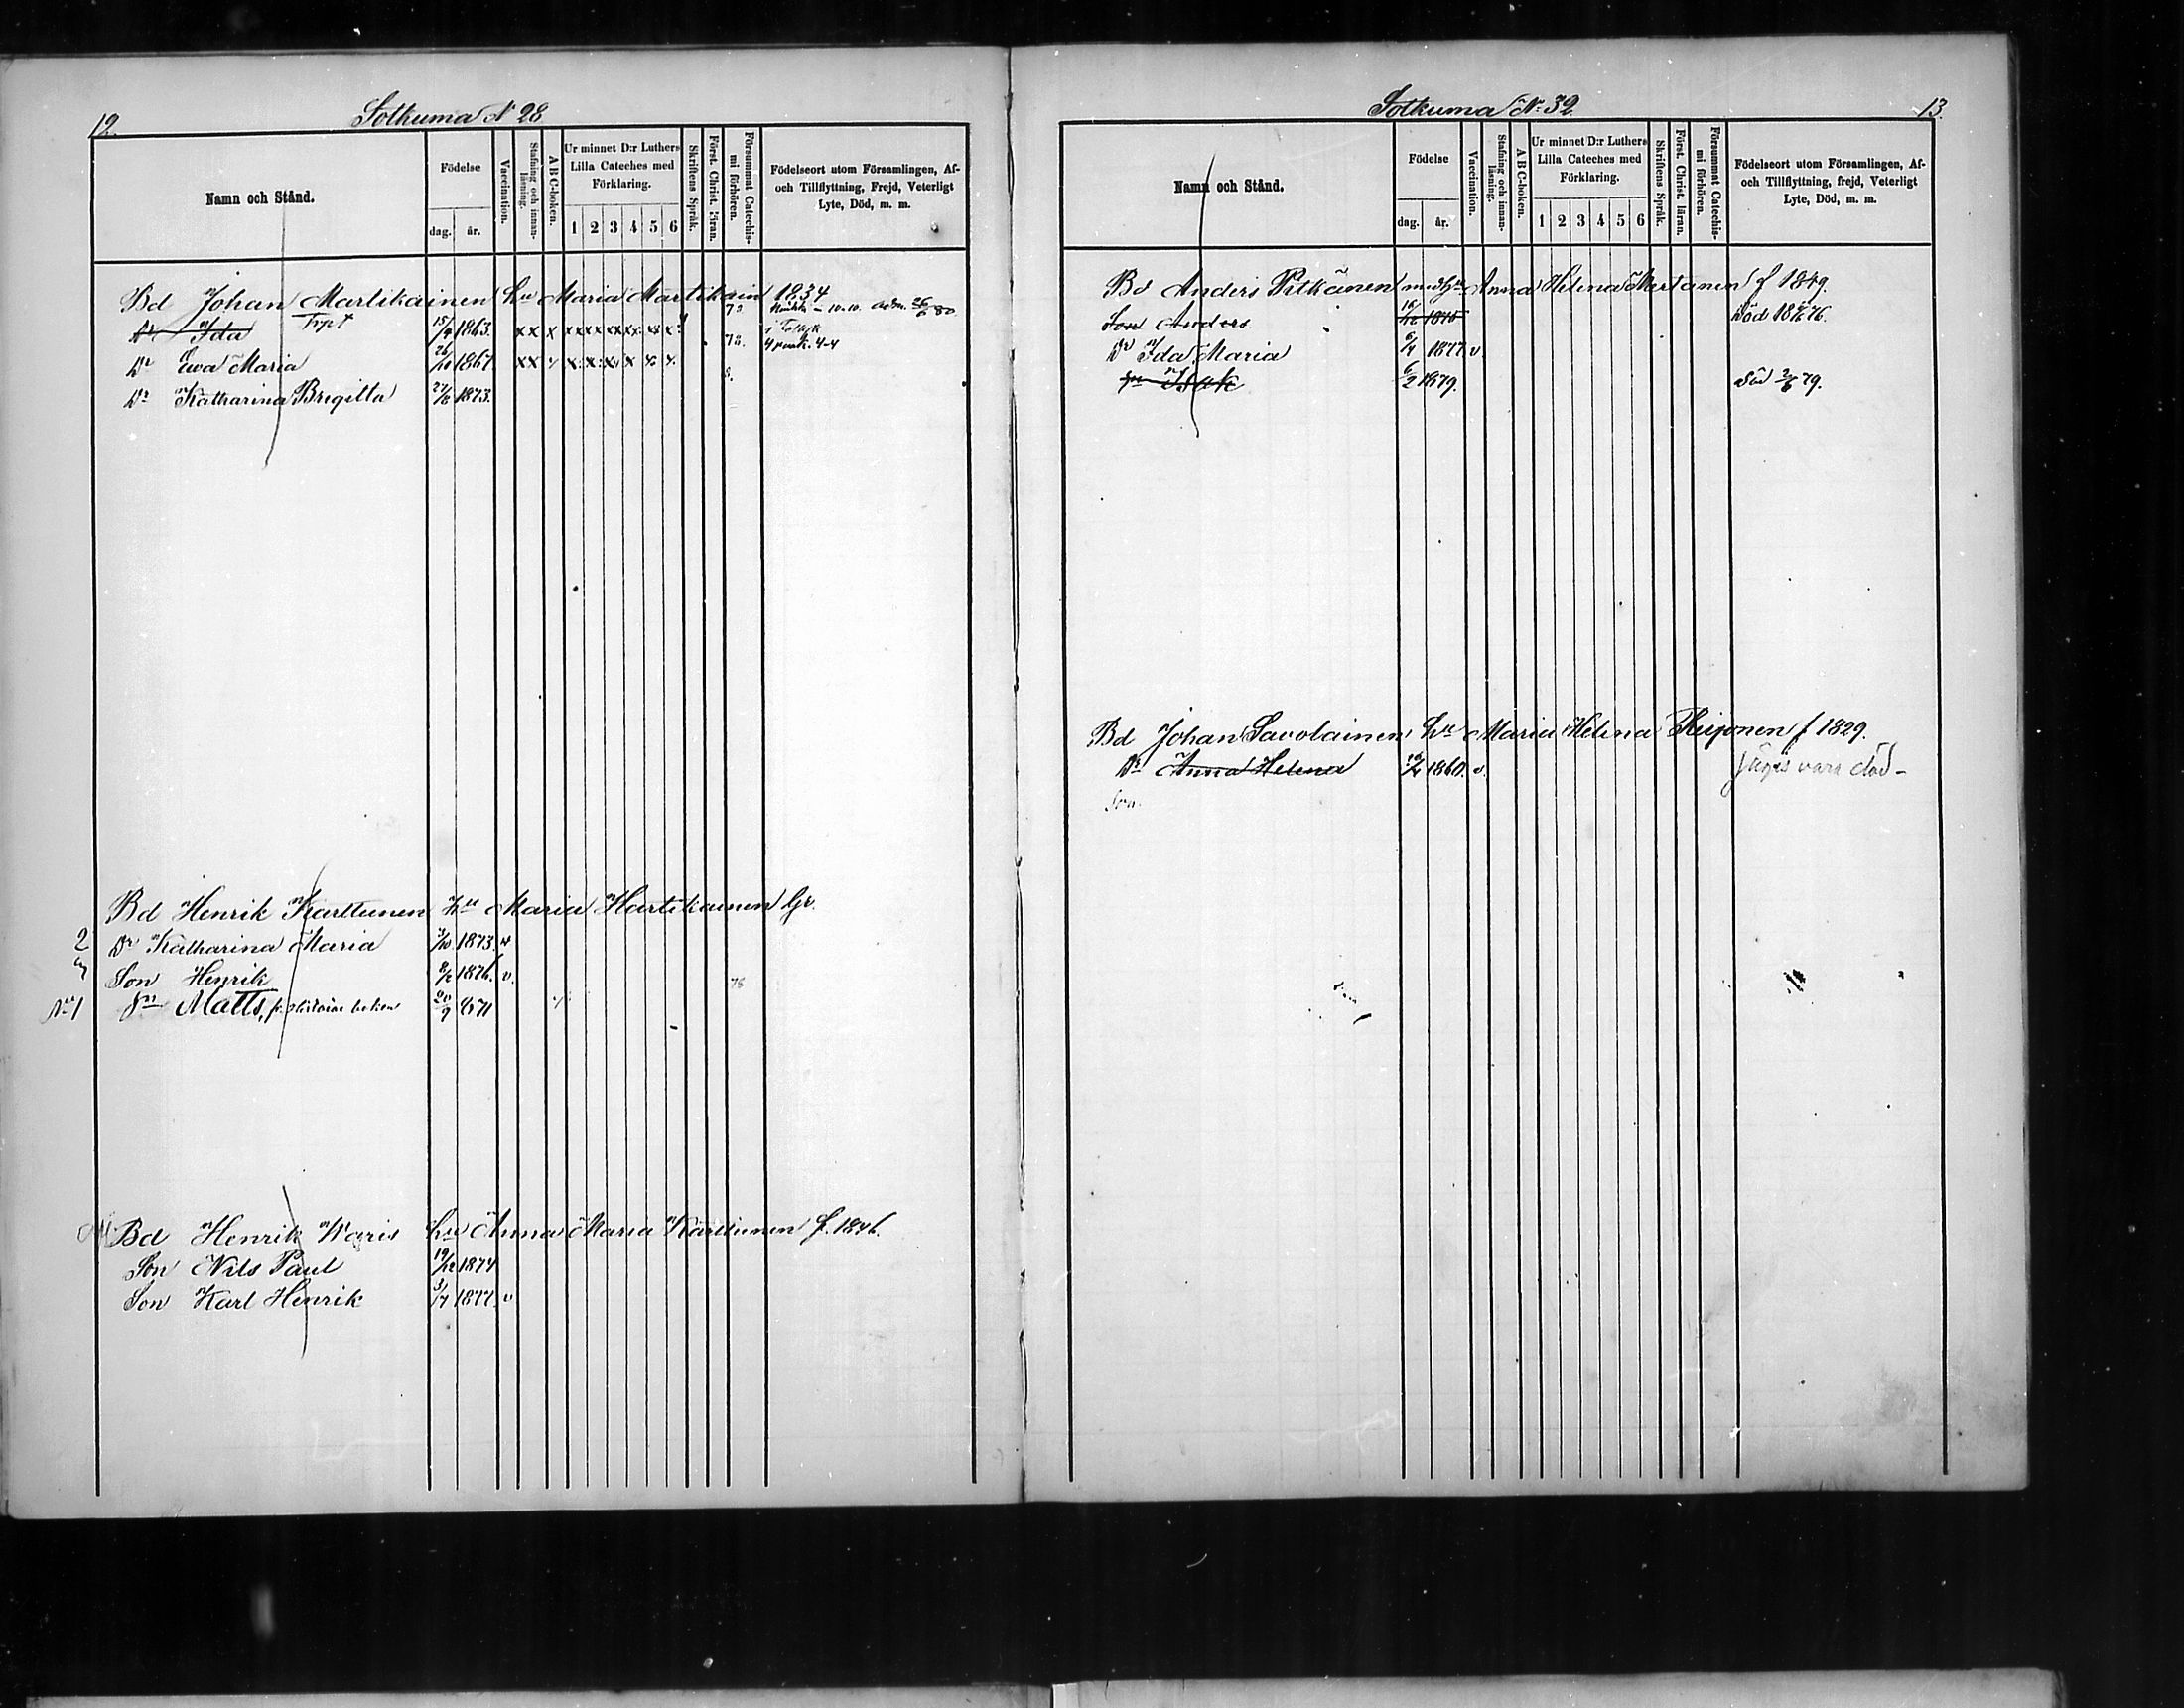 12.
Sotkuma N 28
Namn och Stånd.
Födelse
dag. år.
Vaccination.
Stafning och innan-läsning.
A B C-boken.
Ur minnet D:r Luthers Lilla Cateches med Förklaring.
1 2 3 4 5 6
Skriftens Språk.
Först. Christ. läran.
Försummat Catechis-mi förhören.
Födelseort utom Församlingen, Af- och Tillflyttning, Frejd, Veterligt Lyte, Död, m. m.
Bd Johan Martikainen hu Maria Martikain 1834
Dr Ida 15/4 1863. 73
Dr Ewa Maria 26/10 1867. 78.
Dr Katharina Brigitta 1873.
Bd Henrik Karttunen hu Maria Hartikainen Gr.
2 Dr Katharina Maria 3/10 1873. v
3 Son Henrik 1876. v. 78
No 1 Sn Matts, 20/9 1871
Bd Henrik Waris hu Anna Maria Karttunen f. 1846.
Son Nils Paul 19/12 1874
Son Karl Henrik 3/7 1877. v
Sotkuma No 32
13.
Namn och Stånd.
Födelse
dag. år.
Vaccination.
Stafning och innan-läsning.
A B C-boken.
Ur minnet D:r Luthers Lilla Cateches med Förklaring.
1 2 3 4 5 6
Skriftens Språk.
Först. Christ. läran.
Försummat Catechis-mi förhören.
Födelseort utom Församlingen, Af- och Tillflyttning, frejd, Veterligt Lyte, Död, m. m.
Bd Anders Pitkänen med hu Anna Helena Mertanen f 1849.
Son Anders 1875 Död 76.
Dr Ida Maria 1877. v.
Sn Isak 6/2 1879. Död 2/6 79.
Bd Johan Savolainen hu Maria Helena f 1829.
Dr Anna Helena 1860. v. säges vara död -
Son.